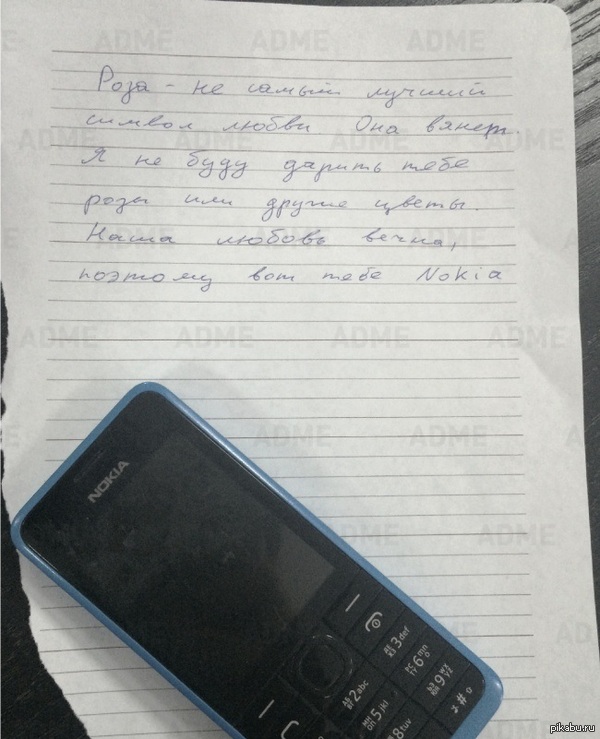 ADME ADME ADME
Роза - не самый лучший
символ любви Она вянет
Я не буду дарить тебе
розы или другие цветы.
Наша любовь вечна,
поэтому вот тебе Nokia
ADME ADME ADME ADME
ADME ADME
ADME ADME
NOKIA
3 def
6 mn
9
2 abc
5 jkl
8 tuv
#
pikabu.ru